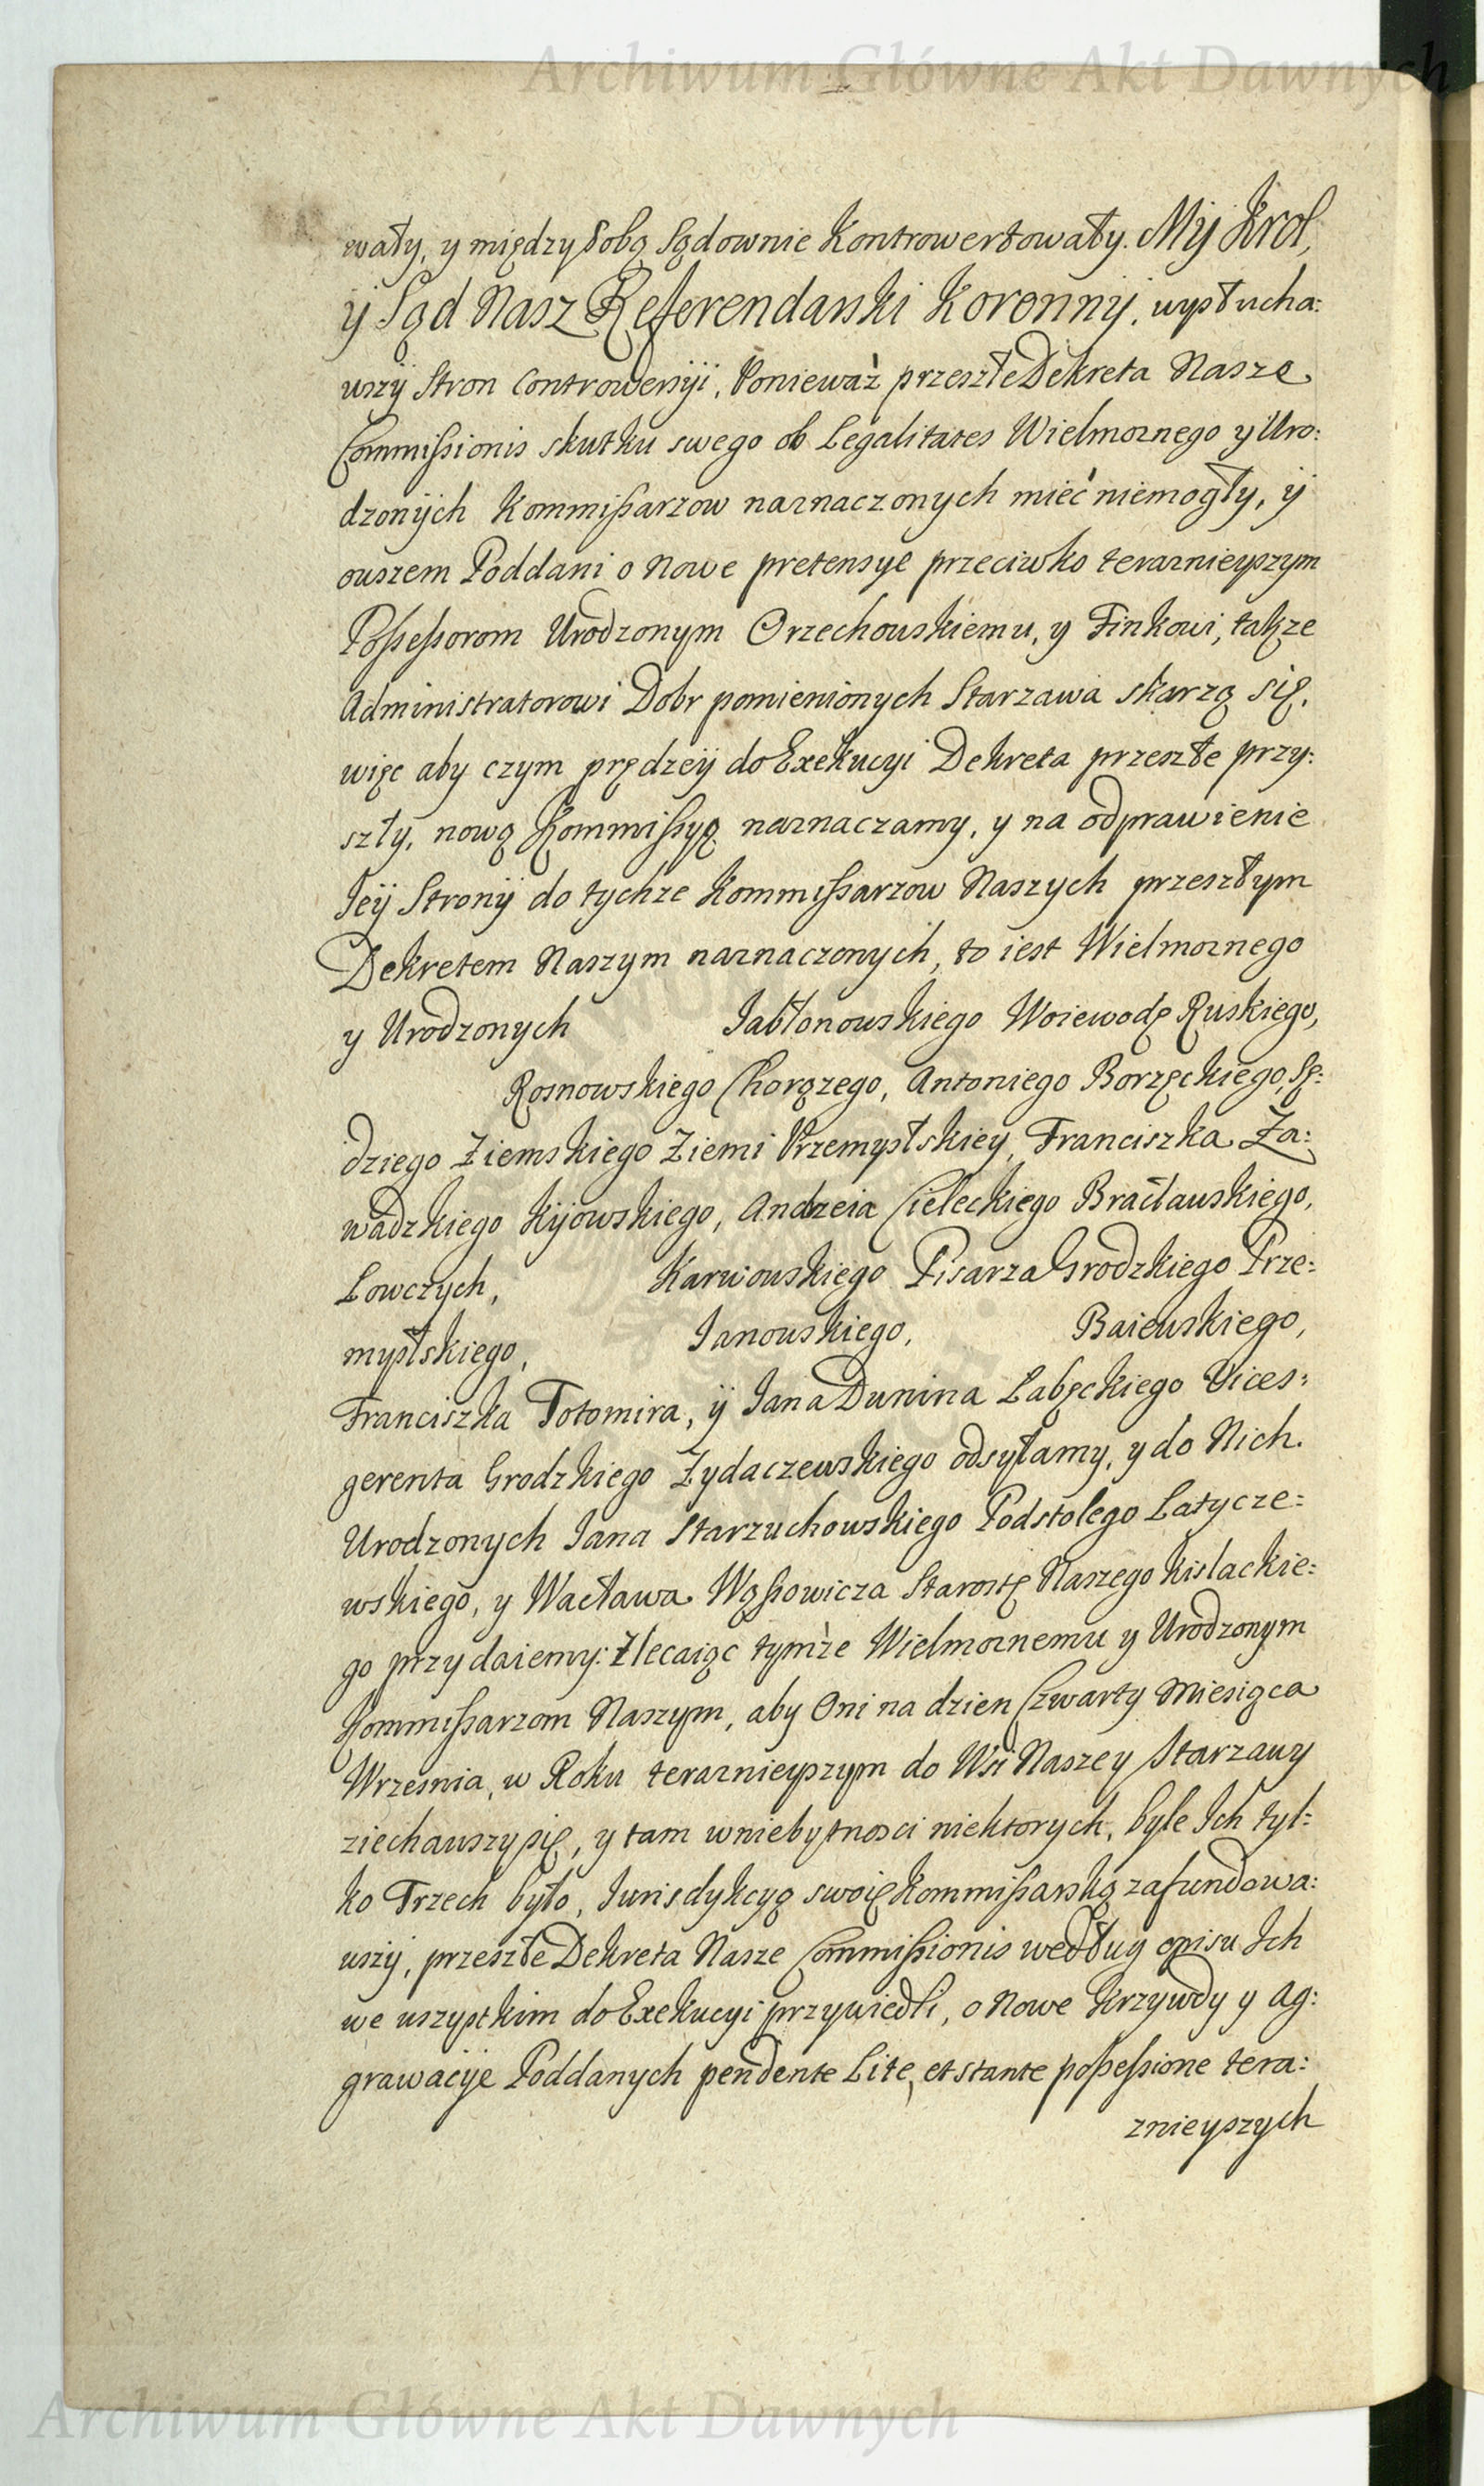 Archiwum Główne Akt Dawnych
wały, y między sobą Sądownie Kontrowertowały. My Krol,
ÿ Sąd Nasz Referendarski Koronnÿ, wysłucha:
wszÿ Stron Controwersÿi, Ponieważ przeszłe Dekreta Nasze
Commissionis skutku swego ob Legalitates Wielmoznego y Uro:
dzonÿch Kommissarzow naznaczonych mieć niemogły, ÿ
owszem Poddani o nowe pretensye przeciwko teraznieyszym
Possessorom Urodzonym Orzechowskiemu, y Finkowi, także
Administratorowi Dobr pomienionych Starzawa skarzą się,
więc aby czym prędzeÿ do Exekucyi Dekreta przeszłe przy:
szły, nową Kommissyą naznaczamy, y na odprawienie
Jeÿ Stronÿ do tychze Kommissarzow Naszych przeszłym
Dekretem Naszym naznaczonych, to iest Wielmoznego
y Urodzonych Jabłonowskiego Woiewodę Ruskiego,
Rosnowskiego Chorązego, Antoniego Borzęckiego, Sę:
dziego Ziemskiego Ziemi Przemyslskiey, Franciszka Za:
wadzkiego Kijowskiego, Andrzeia Cieleckiego Bracławskiego,
Łowczych, Karwowskiego Pisarza Grodzkiego Prze:
myslskiego, Janowskiego, Baiewskiego,
Franciszka Totomira, ÿ Jana Dunina Łabęckiego Vices:
gerenta Grodzkiego Zydaczewskiego odsyłamy, y do Nich
Urodzonych Jana Starzuchowskiego Podstolego Latycze:
wskiego, y Wacława Wąssowicza Starostę Naszego Kislackie:
go przydaiemy: Zlecaiąc tymże Wielmoznemu y Urodzonym
Kommissarzom Naszym, aby Oni na dzien Czwarty Miesiąca
Wrzesnia, w Roku teraznieyszym do Wsi Naszey Starzawy
ziechawszy się, y tam w niebytnosci niektorych, byle Ich tyl:
ko Trzech było, Jurisdykcyą swoię Kommissarską zafundowa:
wszÿ, przeszłe Dekreta Nasze Commissionis według opisu Ich
we wszystkim do Exekucyi przywiedli, o nowe Krzywdy y Ag:
grawacÿe Poddanych pendente Lite, et stante possessione tera:
znieyszych
Archiwum Główne Akt Dawnych